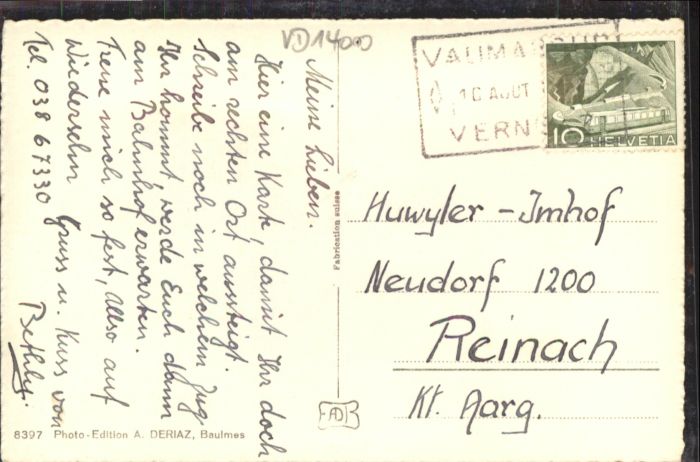 VD14000
Meine Lieben.
Hier eine Karte, damit Ihr doch
am rechten Ort aussteigt.
Schreibe noch in welchem Zug
Ihr kommt, werde Euch dann
am Bahnhof erwarten.
Freue mich so fest, Also auf
Wiedersehn Gruss u. Kuss von
Tel. 038 67330 Bethly.
Fabrication suisse
8397 Photo-Edition A. DERIAZ, Baulmes
AD
10 AOUT
VERN
10 HELVETIA
Huwyler-Imhof
Neudorf 1200
Reinach
Kt. Aarg.